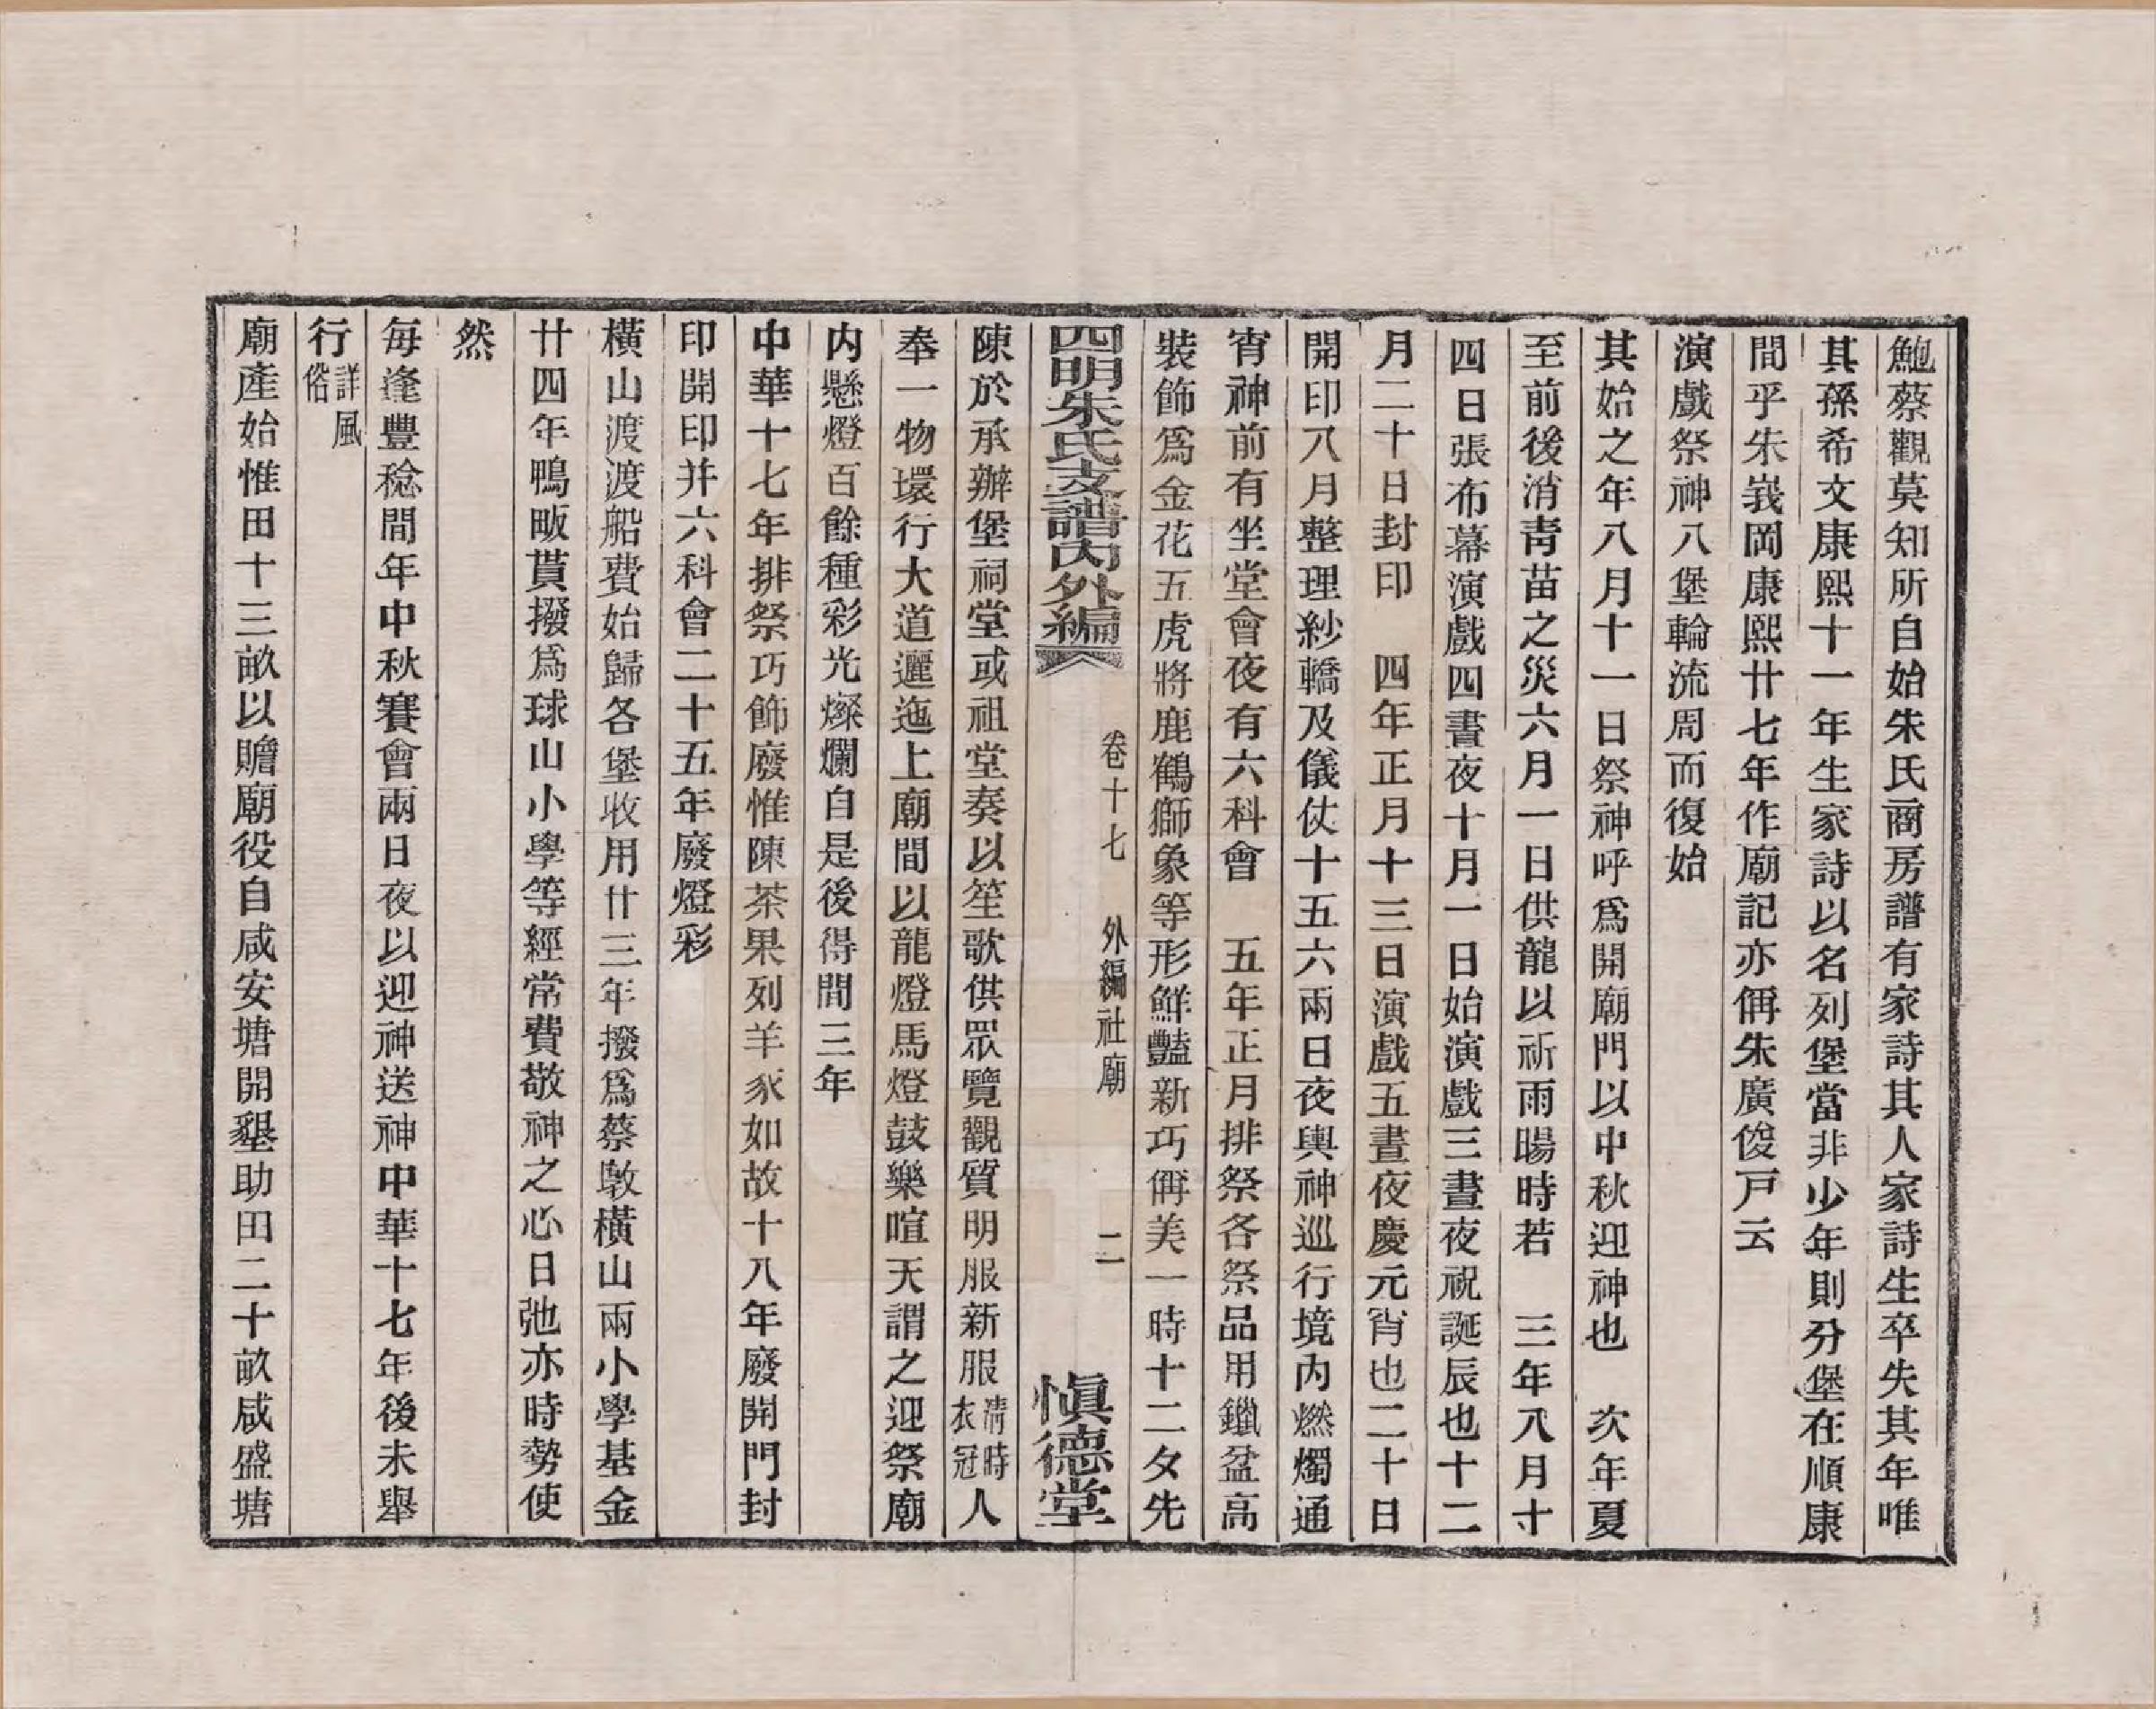 鮑蔡觀莫知所自始朱氏商房譜有家詩其人家詩生卒失其年唯
其孫希文康熙十一年生家詩以名列堡當非少年則分堡在順康
間乎朱峩岡康熙廿七年作廟記亦偁朱廣俊戸云
演戲祭神八堡輪流周而復始
其始之年八月十一日祭神呼爲開廟門以中秋迎神也　次年夏
至前後消靑苗之災六月一日供龍以祈雨暘時若　三年八月十
四日張布幕演戲四晝夜十月一日始演戲三晝夜祝誕辰也十二
月二十日封印　四年正月十三日演戲五晝夜慶元宵也二十日
開印八月整理紗轎及儀仗十五六兩日夜輿神巡行境内燃燭通
宵神前有坐堂會夜有六科會　五年正月排祭各祭品用鑞盆高
裝飾爲金花五虎將鹿鶴獅象等形鮮豔新巧偁美一時十二夕先
四明朱氏支譜内外編　卷十七　外編社廟　二　愼德堂
陳於承辦堡祠堂或祖堂奏以笙歌供眾覽觀質明服新服清時衣冠人
奉一物環行大道邐迤上廟間以龍燈馬燈鼓樂喧天謂之迎祭廟
内懸燈百餘種彩光燦爛自是後得間三年
中華十七年排祭巧飾廢惟陳茶果列羊豕如故十八年廢開門封
印開印并六科會二十五年廢燈彩
橫山渡渡船費始歸各堡收用廿三年撥爲蔡墩橫山兩小學基金
廿四年鴨畈貰撥爲球山小學等經常費敬神之心日弛亦時勢使
然
每逢豐稔間年中秋賽會兩日夜以迎神送神中華十七年後未舉
行詳風俗
廟產始惟田十三畝以贍廟役自咸安塘開墾助田二十畝咸盛塘